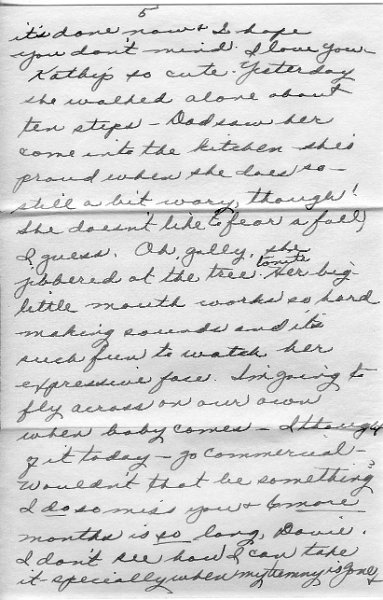 5
it's done now & I hope
you don't mind. I love you -
Kathy's so cute. Yesterday
she walked alone about
ten steps - Dad saw her
come into the kitchen - she's
proud when she does so -
still a bit wary, though!
She doesn't like to fear a fall,
I guess. Oh, golly, she
jibbered at the tree tonite. Her big
little mouth works so hard
making sounds and it's
such fun to watch her
expressive face. I'm going to
fly across on our own
when baby comes - I though
of it today - go commercial -
Wouldn't that be something?
I do so miss you & 6 more
months is so long, Davie.
I don't see how I can take
it - specially when my tummy is gone &